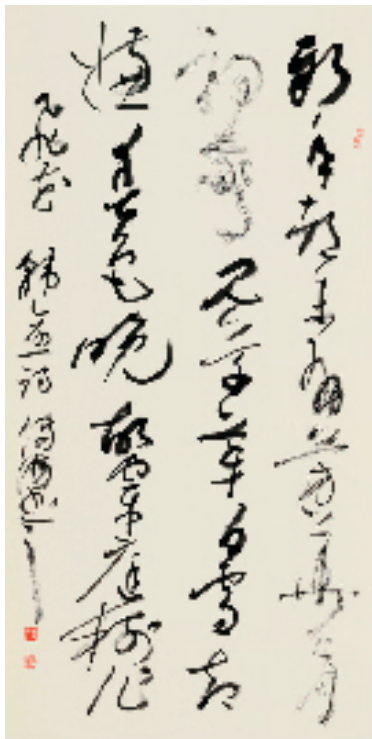 新年都未有芳華二月
初驚見草芽白雪却
嫌春色晚故穿庭樹作
飛花 韓愈詩